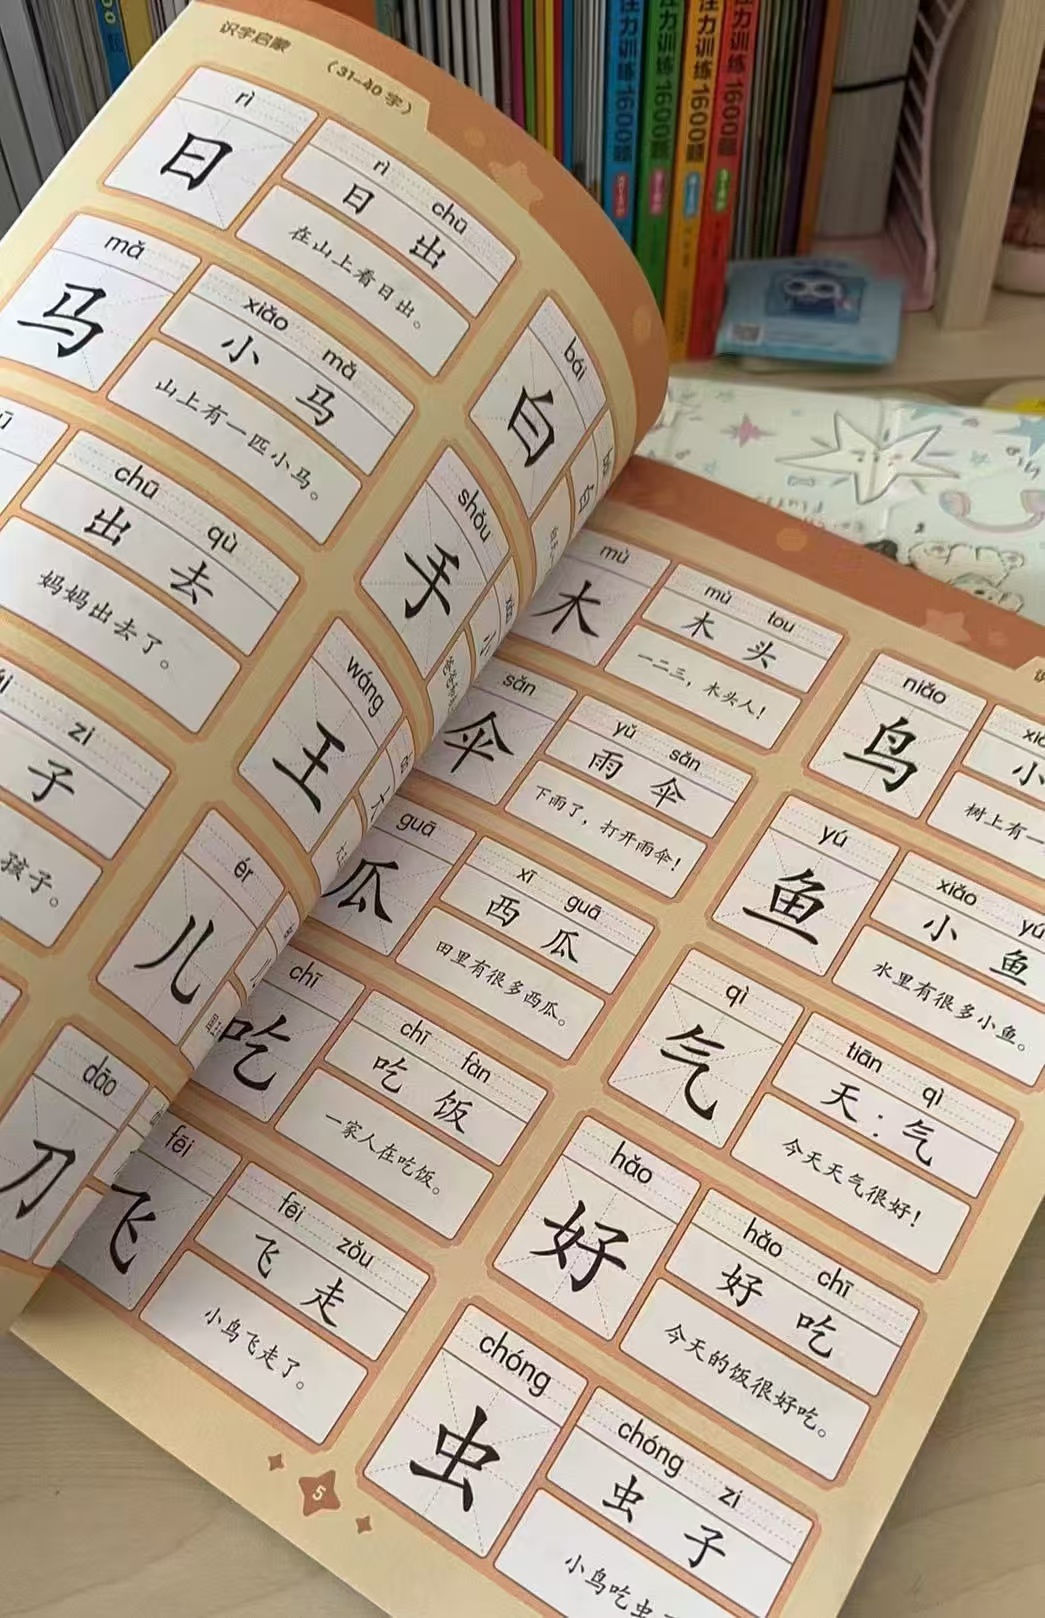 识字启蒙
(31-40 字)
rì
日
rì chū
日出
在山上看日出。
mǎ
马
xiǎo mǎ
小马
山上有一匹小马。
chū qù
出去
妈妈出去了。
zi
子
孩子。
bái
白
shǒu
手
wáng
王
ér
儿
dāo
刀
mù
木
mù tou
木头
一二三，木头人！
sǎn
伞
yǔ sǎn
雨伞
下雨了，打开雨伞！
guā
瓜
xī guā
西瓜
田里有很多西瓜。
chī
吃
chī fàn
吃饭
一家人在吃饭。
fēi
飞
fēi zǒu
飞走
小鸟飞走了。
niǎo
鸟
小
树上有一
yú
鱼
xiǎo yú
小鱼
水里有很多小鱼。
qì
气
tiān qì
天气
今天天气很好！
hǎo
好
hǎo chī
好吃
今天的饭很好吃。
chóng
虫
chóng zi
虫子
小鸟吃虫
5
注力训练1600题
注力训练1600题
注力训练1600题
力训练1600题